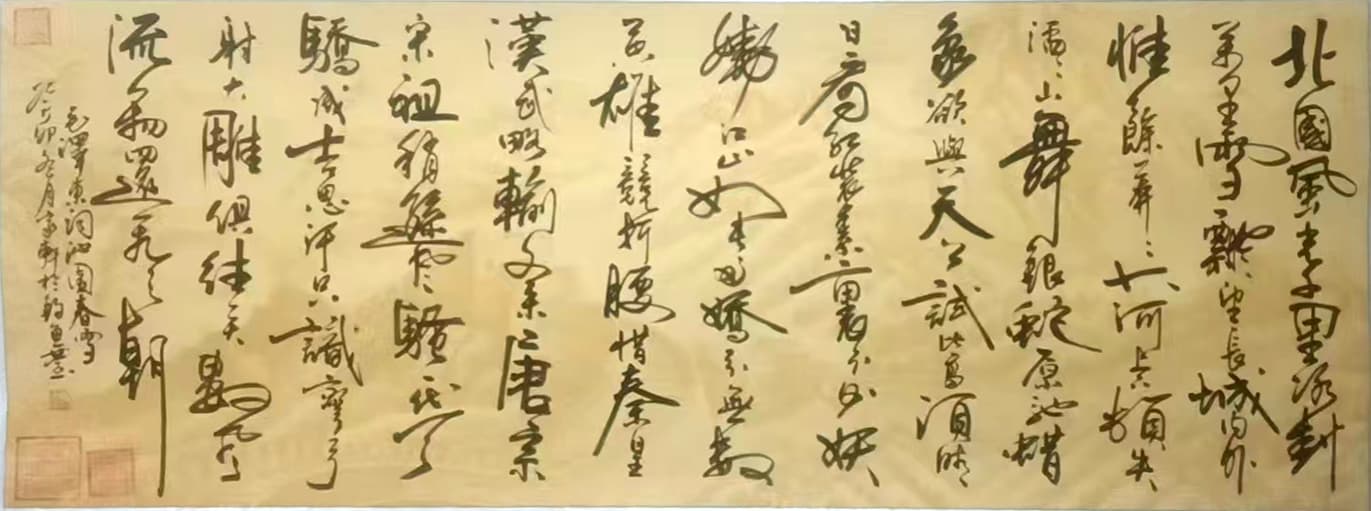 北國風光千里冰封
萬里雪飄望長城內外
惟餘莽〻大河上下頓失
滔〻山舞銀蛇原馳蠟
象欲與天公試比高須晴
日看紅裝素裹分外妖
嬈江山如此多嬌引無數
英雄競折腰惜秦皇
漢武略輸文采唐宗
宋祖稍遜風騷一代天
驕成吉思汗只識彎弓
射大雕俱往矣數風
流人物還看今朝
毛澤東詞沁園春雪
卯 月 軒於釣魚臺